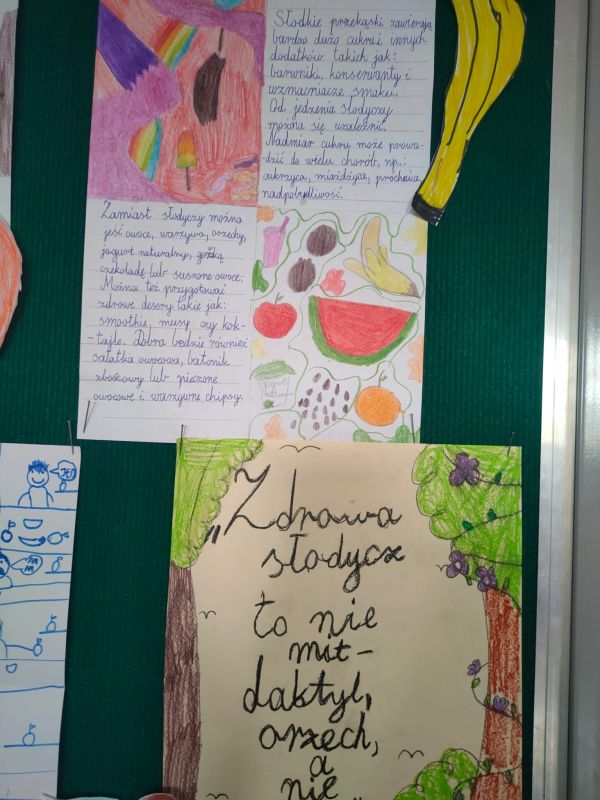 Słodkie przekąski zawierają
bardzo dużo cukru i innych
dodatków takich jak:
barwniki, konserwanty i
wzmacniacze smaku.
Od jedzenia słodyczy
można się uzależnić.
Nadmiar cukru może prowa-
dzić do wielu chorób, np.:
cukrzyca, miażdżyca, próchnica
nadpobudliwość.
Zamiast słodyczy można
jeść owoce, warzywa, orzechy,
jogurt naturalny, gorzką
czekoladę lub suszone owoce.
Można też przygotować
zdrowe desery takie jak:
smoothie, musy czy kok-
-tajle. Dobra będzie również
sałatka owocowa, batonik
zbożowy lub pieczone
owocowe i warzywne chipsy.
jogurt
JEJ
„Zdrowa
słodycz
to nie
mit-
daktyl,
orzech,
a
nie